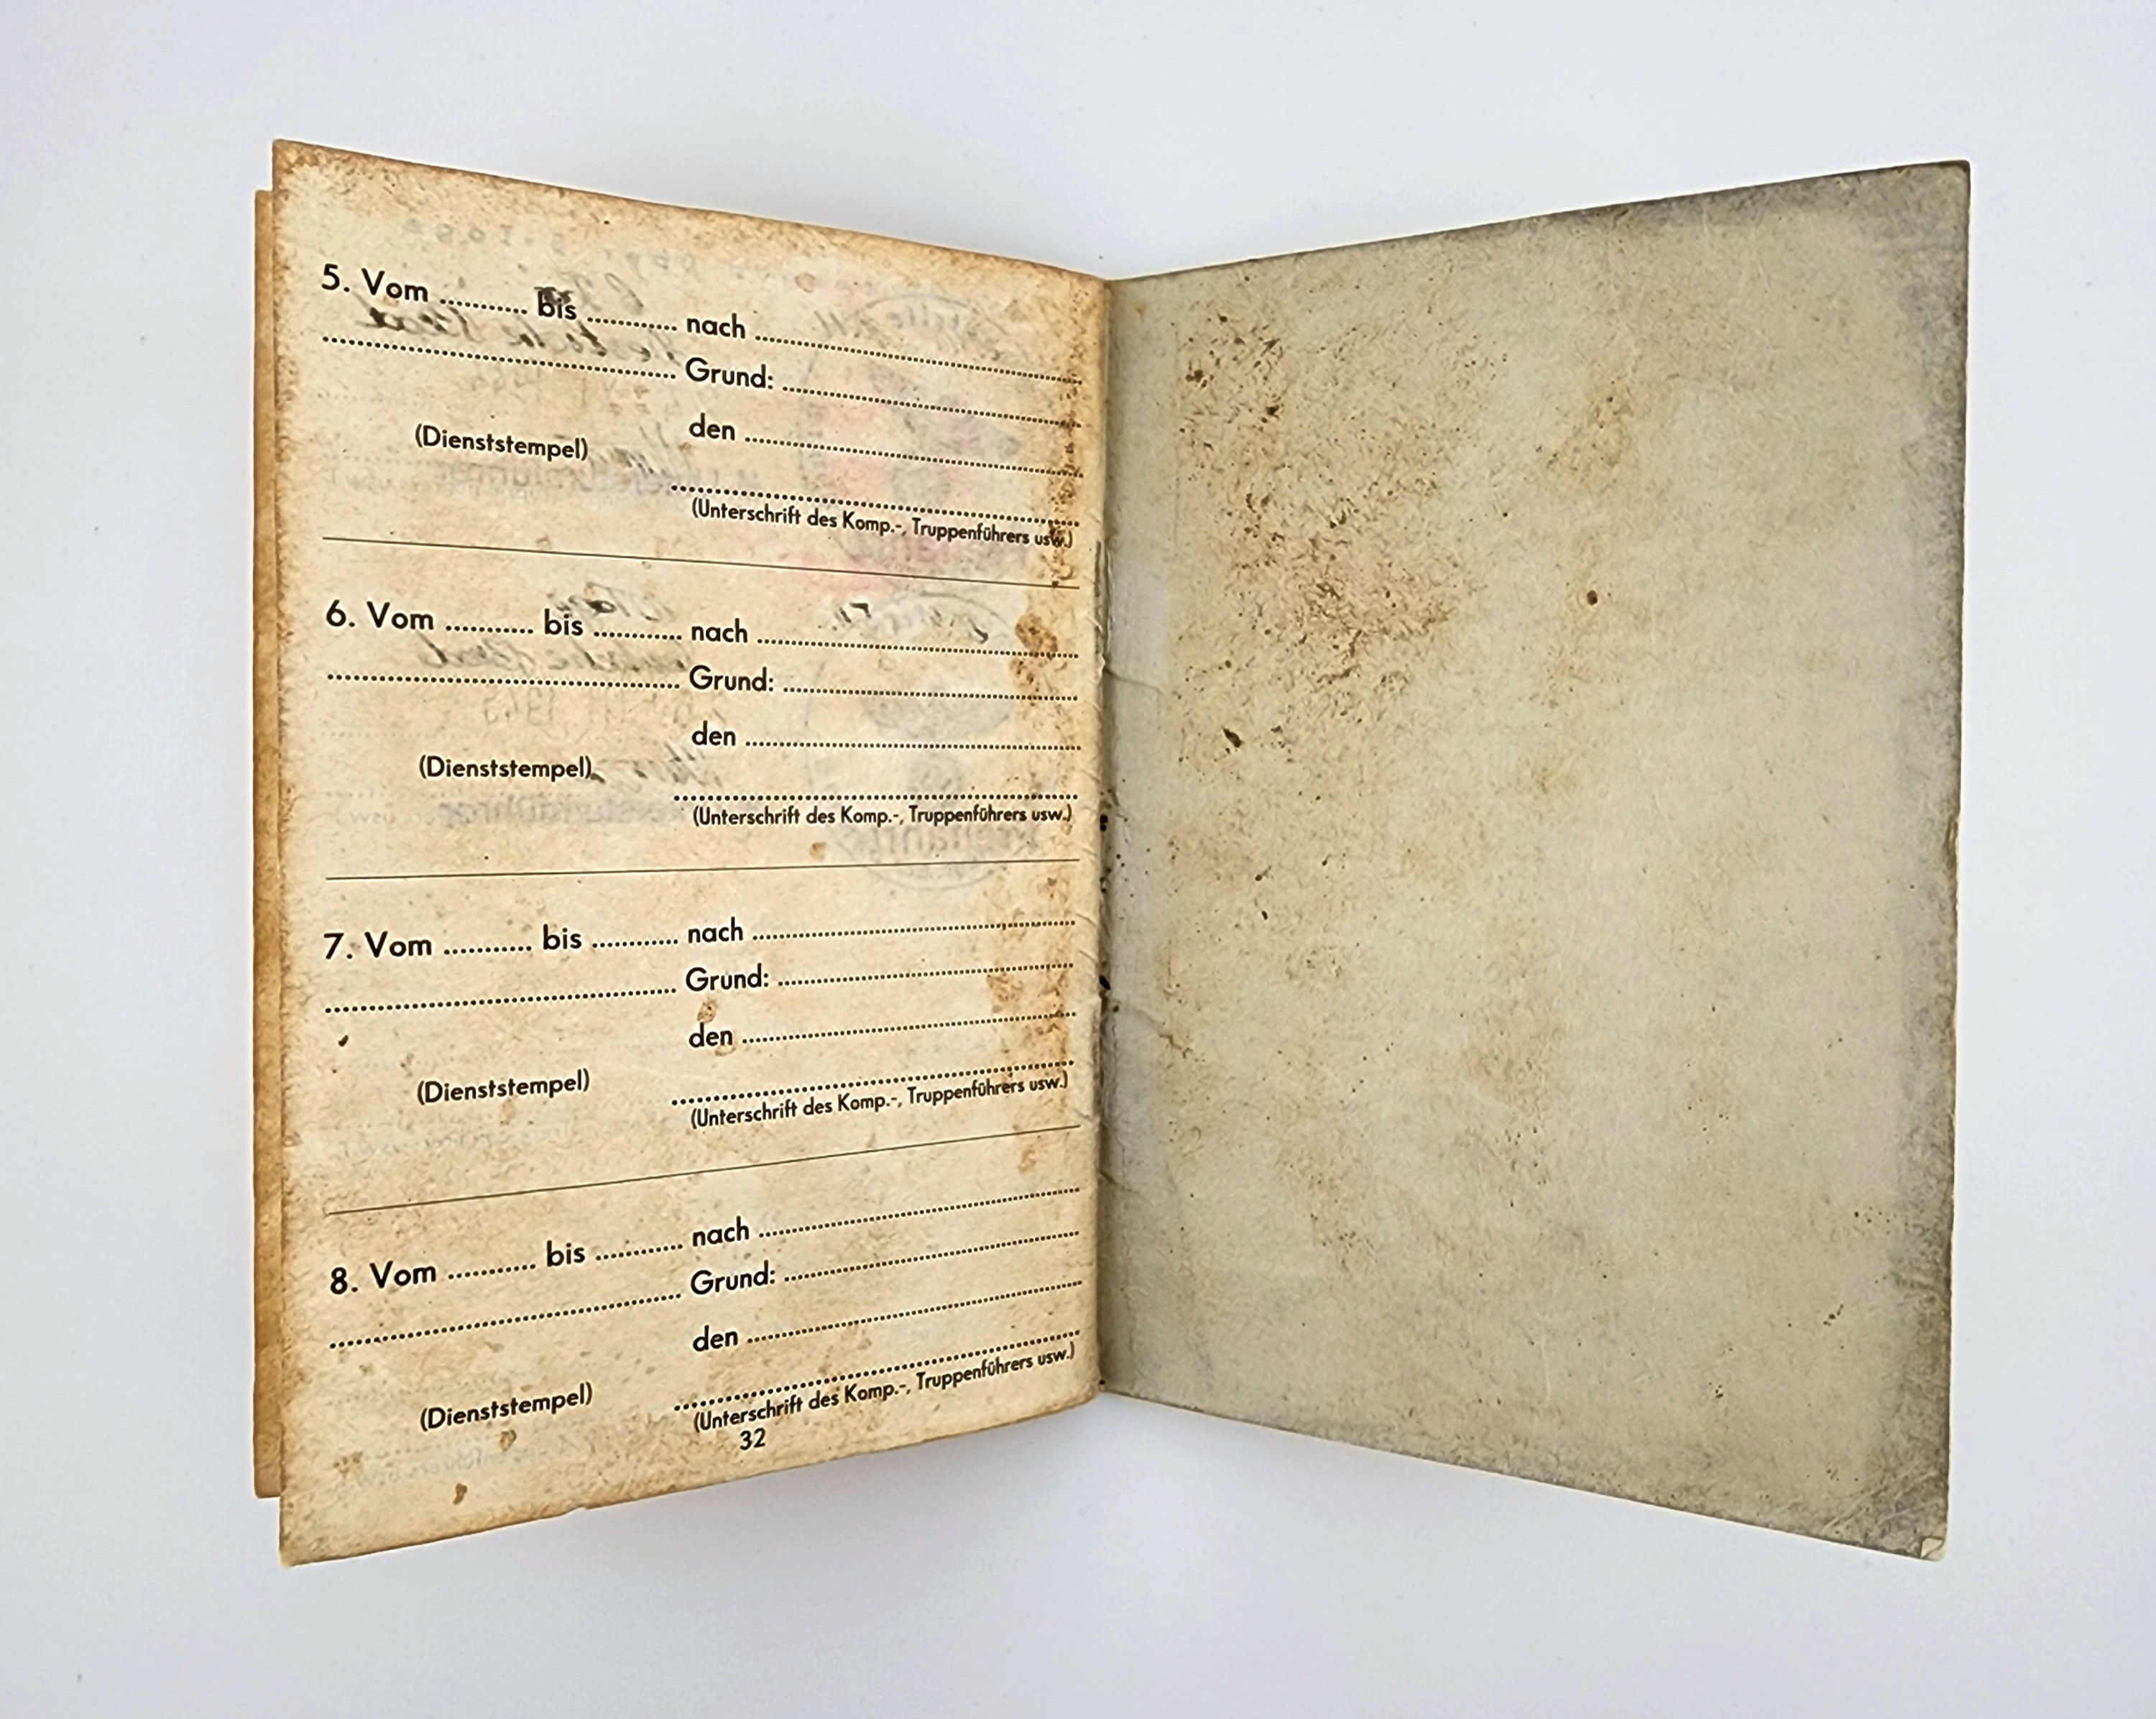 5. Vom .......... bis .......... nach ........................................
........................................ Grund: ........................................
den ........................................
(Dienststempel)
........................................
(Unterschrift des Komp.-, Truppenführers usw.)
6. Vom .......... bis .......... nach ........................................
........................................ Grund: ........................................
den ........................................
(Dienststempel)
........................................
(Unterschrift des Komp.-, Truppenführers usw.)
7. Vom .......... bis .......... nach ........................................
........................................ Grund: ........................................
den ........................................
(Dienststempel)
........................................
(Unterschrift des Komp.-, Truppenführers usw.)
8. Vom .......... bis .......... nach ........................................
........................................ Grund: ........................................
den ........................................
(Dienststempel)
........................................
(Unterschrift des Komp.-, Truppenführers usw.)
32